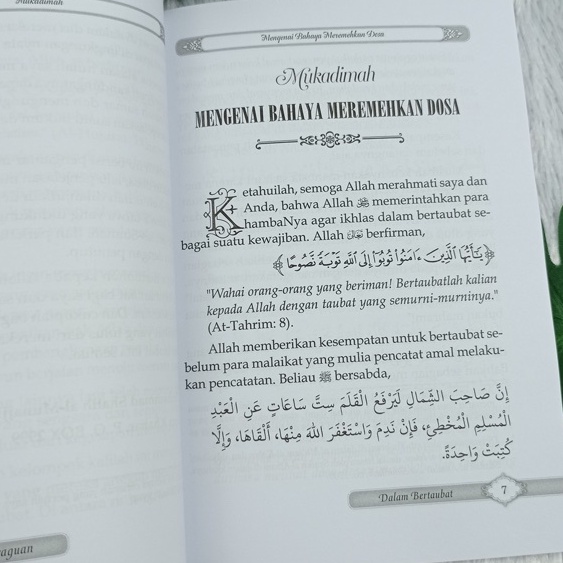 Mukadimah
aguan
Mengenai Bahaya Meremehkan Dosa
Mukadimah
MENGENAI BAHAYA MEREMEHKAN DOSA
Ketahuilah, semoga Allah merahmati saya dan
Anda, bahwa Allah ﷻ memerintahkan para
hambaNya agar ikhlas dalam bertaubat se-
bagai suatu kewajiban. Allah berfirman,
﴿ يَـٰٓأَيُّهَا ٱلَّذِينَ ءَامَنُوا۟ تُوبُوٓا۟ إِلَى ٱللَّهِ تَوْبَةً نَّصُوحًا ﴾
"Wahai orang-orang yang beriman! Bertaubatlah kalian
kepada Allah dengan taubat yang semurni-murninya."
(At-Tahrim: 8).
Allah memberikan kesempatan untuk bertaubat se-
belum para malaikat yang mulia pencatat amal melaku-
kan pencatatan. Beliau ﷺ bersabda,
إِنَّ صَاحِبَ الشِّمَالِ لَيَرْفَعُ الْقَلَمَ سِتَّ سَاعَاتٍ عَنِ الْعَبْدِ
الْمُسْلِمِ الْمُخْطِئِ، فَإِنْ نَدِمَ وَاسْتَغْفَرَ اللهَ مِنْهَا، أَلْقَاهَا، وَإِلَّا
كُتِبَتْ وَاحِدَةً.
Dalam Bertaubat 7